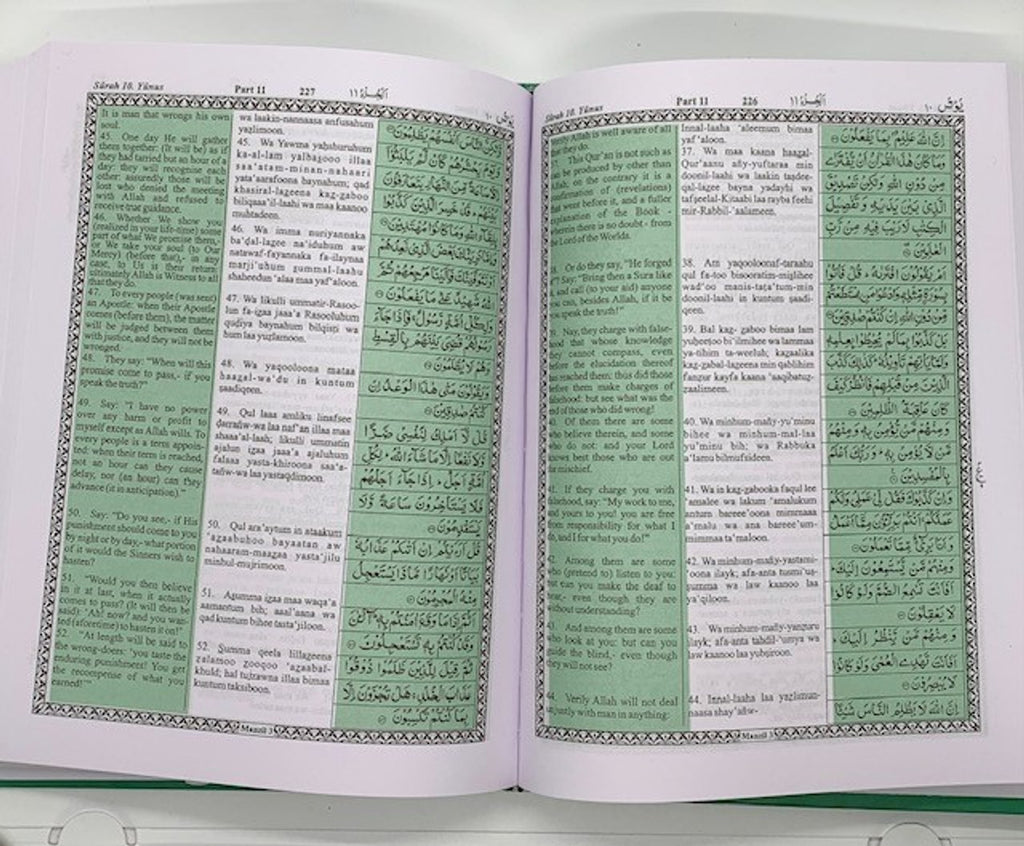 Sûrah 10. Yûnus
Part 11
226
الجزء ١١
يونس ١٠
Verily Allah is well aware of all
that they do.
This Qur'an is not such as
can be produced by other than
Allah; on the contrary it is a
confirmation of (revelations)
that went before it, and a fuller
explanation of the Book -
wherein there is no doubt - from
the Lord of the Worlds.
Or do they say, "He forged
it"? Say: "Bring then a Sura like
it, and call (to your aid) anyone
you can, besides Allah, if it be
you speak the truth!"
Nay, they charge with false-
hood that whose knowledge
they cannot compass, even
before the elucidation thereof
has reached them: thus did those
before them make charges of
falsehood: but see what was the
end of those who did wrong!
Of them there are some
who believe therein, and some
who do not: and your Lord
knows best those who are out
for mischief.
41. If they charge you with
falsehood, say: "My work to me,
and yours to you! you are free
from responsibility for what I
do, and I for what you do!"
42. Among them are some
who (pretend to) listen to you:
but can you make the deaf to
hear,- even though they are
without understanding?
And among them are some
who look at you: but can you
guide the blind,- even though
they will not see?
44. Verily Allah will not deal
unjustly with man in anything:
Innal-laaha 'aleemum bimaa
yaf'aloon.
37. Wa maa kaana haagal-
Qur'aanu añy-yuftaraa min
doonil-laahi wa laakin taṣdee-
qal-lagee bayna yadayhi wa
tafṣeelal-Kitaabi laa rayba feehi
mir-Rabbil-'aalameen.
38. Am yaqooloonaf-taraahu
qul fa-too bisooratim-miglihee
wad'oo manis-taṭa'tum-min
doonil-laahi in kuntum ṣaadi-
qeen.
39. Bal kag-gaboo bimaa lam
yuḥeeṭoo bi'ilmihee wa lammaa
ya-tihim ta-weeluh; kagaalika
kag-gabal-lageena min qablihim
fanẓur kayfa kaana 'aaqibatuẓ-
ẓaalimeen.
40. Wa minhum-mañy-yu'minu
bihee wa minhum-mal-laa
yu'minu bih; wa Rabbuka
a'lamu bilmufsideen.
41. Wa in kag-gabooka faqul lee
'amalee wa lakum 'amalukum
antum bareee'oona mimmaaa
a'malu wa ana bareee'um-
mimmaa ta'maloon.
42. Wa minhum-mañy-yastami-
'oona ilayk; afa-anta tusmi'uṣ-
ṣumma wa law kaanoo laa
ya'qiloon.
43. Wa minhum-mañy-yanẓuru
ilayk; afa-anta tahdil-'umya wa
law kaanoo laa yubṣiroon.
44. Innal-laaha laa yaẓlimun-
naasa shay'añw-
إِنَّ اللهَ عَلِيمٌ بِمَا يَفْعَلُونَ
وَمَا كَانَ هٰذَا الْقُرْآنُ أَنْ يُفْتَرٰى
مِنْ دُونِ اللهِ وَلٰكِنْ تَصْدِيقَ
الَّذِي بَيْنَ يَدَيْهِ وَتَفْصِيلَ
الْكِتٰبِ لَا رَيْبَ فِيهِ مِنْ رَبِّ
الْعٰلَمِينَ
أَمْ يَقُولُونَ افْتَرٰىهُ ۖ قُلْ فَأْتُوا
بِسُورَةٍ مِثْلِهِ وَادْعُوا مَنِ اسْتَطَعْتُمْ
مِنْ دُونِ اللهِ إِنْ كُنْتُمْ صٰدِقِينَ
بَلْ كَذَّبُوا بِمَا لَمْ يُحِيطُوا بِعِلْمِهِ
وَلَمَّا يَأْتِهِمْ تَأْوِيلُهُ ۚ كَذٰلِكَ كَذَّبَ
الَّذِينَ مِنْ قَبْلِهِمْ فَانْظُرْ كَيْفَ
كَانَ عَاقِبَةُ الظّٰلِمِينَ
وَمِنْهُمْ مَنْ يُؤْمِنُ بِهِ وَمِنْهُمْ
مَنْ لَا يُؤْمِنُ بِهِ ۚ وَرَبُّكَ أَعْلَمُ
بِالْمُفْسِدِينَ
وَإِنْ كَذَّبُوكَ فَقُلْ لِي عَمَلِي وَلَكُمْ
عَمَلُكُمْ ۖ أَنْتُمْ بَرِيئُونَ مِمَّا أَعْمَلُ
وَأَنَا بَرِيءٌ مِمَّا تَعْمَلُونَ
وَمِنْهُمْ مَنْ يَسْتَمِعُونَ إِلَيْكَ ۚ
أَفَأَنْتَ تُسْمِعُ الصُّمَّ وَلَوْ كَانُوا
لَا يَعْقِلُونَ
وَمِنْهُمْ مَنْ يَنْظُرُ إِلَيْكَ ۚ
أَفَأَنْتَ تَهْدِي الْعُمْيَ وَلَوْ كَانُوا
لَا يُبْصِرُونَ
إِنَّ اللهَ لَا يَظْلِمُ النَّاسَ شَيْئًا
Manzil 3
Sûrah 10. Yûnus
Part 11
227
الجزء ١١
يونس ١٠
It is man that wrongs his own
soul.
45. One day He will gather
them together: (It will be) as if
they had tarried but an hour of a
day: they will recognise each
other: assuredly those will be
lost who denied the meeting
with Allah and refused to
receive true guidance.
46. Whether We show you
(realized in your life-time) some
part of what We promise them,-
or We take your soul (to Our
Mercy) (before that),- in any
case, to Us is their return:
ultimately Allah is Witness to all
that they do.
47. To every people (was sent)
an Apostle: when their Apostle
comes (before them), the matter
will be judged between them
with justice, and they will not be
wronged.
48. They say: "When will this
promise come to pass,- if you
speak the truth?"
49. Say: "I have no power
over any harm or profit to
myself except as Allah wills. To
every people is a term appoin-
ted: when their term is reached,
not an hour can they cause
delay, nor (an hour) can they
advance (it in anticipation)."
50. Say: "Do you see,- if His
punishment should come to you
by night or by day,- what portion
of it would the Sinners wish to
hasten?
51. "Would you then believe
in it at last, when it actually
comes to pass? (It will then be
said:) 'Ah! now? and you wan-
ted (aforetime) to hasten it on!'
52. "At length will be said to
the wrong-doers: 'you taste the
enduring punishment! You get
the recompense of what you
earned!'"
wa laakin-nannaasa anfusahum
yaẓlimoon.
45. Wa Yawma yaḥshuruhum
ka-al-lam yalbagooo illaa
saa'atam-minan-nahaari
yata'aarafoona baynahum; qad
khasiral-lageena kag-gaboo
biliqaaa'il-laahi wa maa kaanoo
muhtadeen.
46. Wa imma nuriyannaka
ba'ḍal-lagee na'iduhum aw
natawaf-fayannaka fa-ilaynaa
marji'uhum summal-laahu
shaheedun 'alaa maa yaf'aloon.
47. Wa likulli ummatir-Rasoo-
lun fa-igaa jaaa'a Rasooluhum
quḍiya baynahum bilqisṭi wa
hum laa yuẓlamoon.
48. Wa yaqooloona mataa
haagal-wa'du in kuntum
ṣaadiqeen.
49. Qul laaa amliku linafsee
ḍarrañw-wa laa naf'an illaa maa
shaaa'al-laah; likulli ummatin
ajalun igaa jaaa'a ajaluhum
falaaa yasta-khiroona saa'a-
tañw-wa laa yastaqdimoon.
50. Qul ara'aytum in ataakum
'agaabuhoo bayaatan aw
nahaaram-maagaa yasta'jilu
minhul-mujrimoon.
51. Asumma igaa maa waqa'a
aamantum bih; aaal'aana wa
qad kuntum bihee tasta'jiloon.
52. Summa qeela lillageena
ẓalamoo gooqoo 'agaabal-
khuld; hal tujzawna illaa bimaa
kuntum taksiboon.
وَلٰكِنَّ النَّاسَ أَنْفُسَهُمْ يَظْلِمُونَ
وَيَوْمَ يَحْشُرُهُمْ كَأَنْ لَمْ يَلْبَثُوا
إِلَّا سَاعَةً مِنَ النَّهَارِ يَتَعَارَفُونَ
بَيْنَهُمْ ۚ قَدْ خَسِرَ الَّذِينَ كَذَّبُوا
بِلِقَاءِ اللهِ وَمَا كَانُوا مُهْتَدِينَ
وَإِمَّا نُرِيَنَّكَ بَعْضَ الَّذِي نَعِدُهُمْ
أَوْ نَتَوَفَّيَنَّكَ فَإِلَيْنَا مَرْجِعُهُمْ ثُمَّ
اللهُ شَهِيدٌ عَلٰى مَا يَفْعَلُونَ
وَلِكُلِّ أُمَّةٍ رَسُولٌ ۖ فَإِذَا جَاءَ
رَسُولُهُمْ قُضِيَ بَيْنَهُمْ بِالْقِسْطِ
وَهُمْ لَا يُظْلَمُونَ
وَيَقُولُونَ مَتٰى هٰذَا الْوَعْدُ إِنْ
كُنْتُمْ صٰدِقِينَ
قُلْ لَا أَمْلِكُ لِنَفْسِي ضَرًّا
وَلَا نَفْعًا إِلَّا مَا شَاءَ اللهُ ۗ لِكُلِّ
أُمَّةٍ أَجَلٌ ۚ إِذَا جَاءَ أَجَلُهُمْ
فَلَا يَسْتَأْخِرُونَ سَاعَةً وَلَا
يَسْتَقْدِمُونَ
قُلْ أَرَءَيْتُمْ إِنْ أَتٰىكُمْ عَذَابُهُ
بَيَاتًا أَوْ نَهَارًا مَاذَا يَسْتَعْجِلُ
مِنْهُ الْمُجْرِمُونَ
أَثُمَّ إِذَا مَا وَقَعَ آمَنْتُمْ بِهِ ۚ آلْئٰنَ
وَقَدْ كُنْتُمْ بِهِ تَسْتَعْجِلُونَ
ثُمَّ قِيلَ لِلَّذِينَ ظَلَمُوا ذُوقُوا
عَذَابَ الْخُلْدِ ۚ هَلْ تُجْزَوْنَ إِلَّا
بِمَا كُنْتُمْ تَكْسِبُونَ
Manzil 3